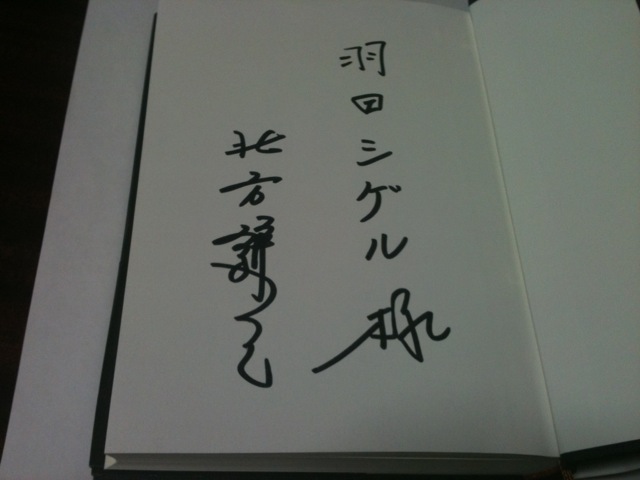 羽田シゲル様
北方謙三